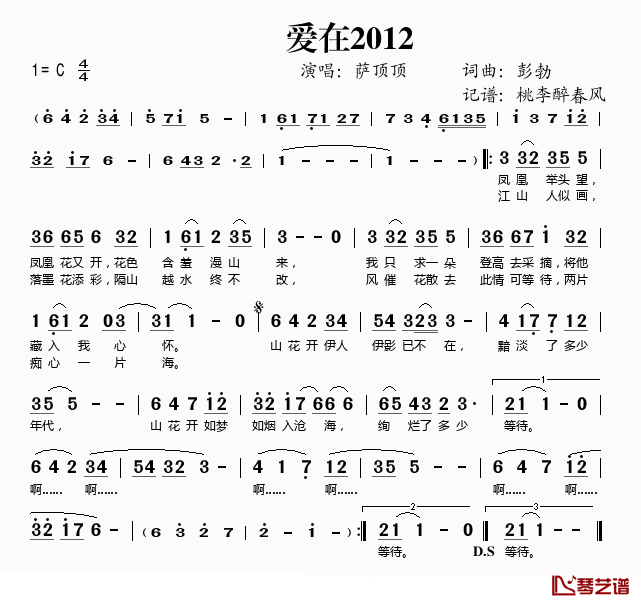 爱在2012
1= C 4/4 演唱：萨顶顶 词曲：彭勃
记谱：桃李醉春风
( 6 4 2 34 | 5 71 5 - | 1 61 71 27 | 7 3 4 6135 | 1 37 12
32 17 6 - | 6 43 2 · 2 | 1 - - - | 1 - - - ) ‖: 3 32 35 5
凤 凰 举头 望，
江山 人似 画，
36 65 6 32 | 1 61 2 35 | 3 - - 0 | 3 32 35 5 | 36 67 1 32
凤凰 花又 开，花色 含 羞 漫 山 来， 我 只 求一 朵 登高 去采 摘，将他
落墨 花添 彩，隔山 越 水 终 不 改， 风 催 花散 去 此情 可等 待，两片
1 61 2 03 | 31 1 - 0 | 6 4 2 34 | 54 323 3 - | 4 17 7 22
藏 入 我 心 怀。 山 花 开 伊人 伊影 已不 在， 黯 淡 了 多少
痴 心 一 片 海。
35 5 - - | 6 4 7 12 | 32 17 66 6 | 65 43 2 3· | 21 1 - 0
1
年代， 山 花 开 如梦 如烟 入沧 海， 绚 烂了 多 少 等待。
6 4 2 34 | 54 32 3 - | 4 1 7 12 | 35 5 - - | 6 4 7 12
啊...... 啊...... 啊...... 啊...... 啊...... 啊......
32 17 6 - | (6 3 2 7 | 2 - 1 - ) :‖ 21 1 - 0 ‖ 21 1 - - ‖
2 3
等待。 D.S 等待。
琴艺谱